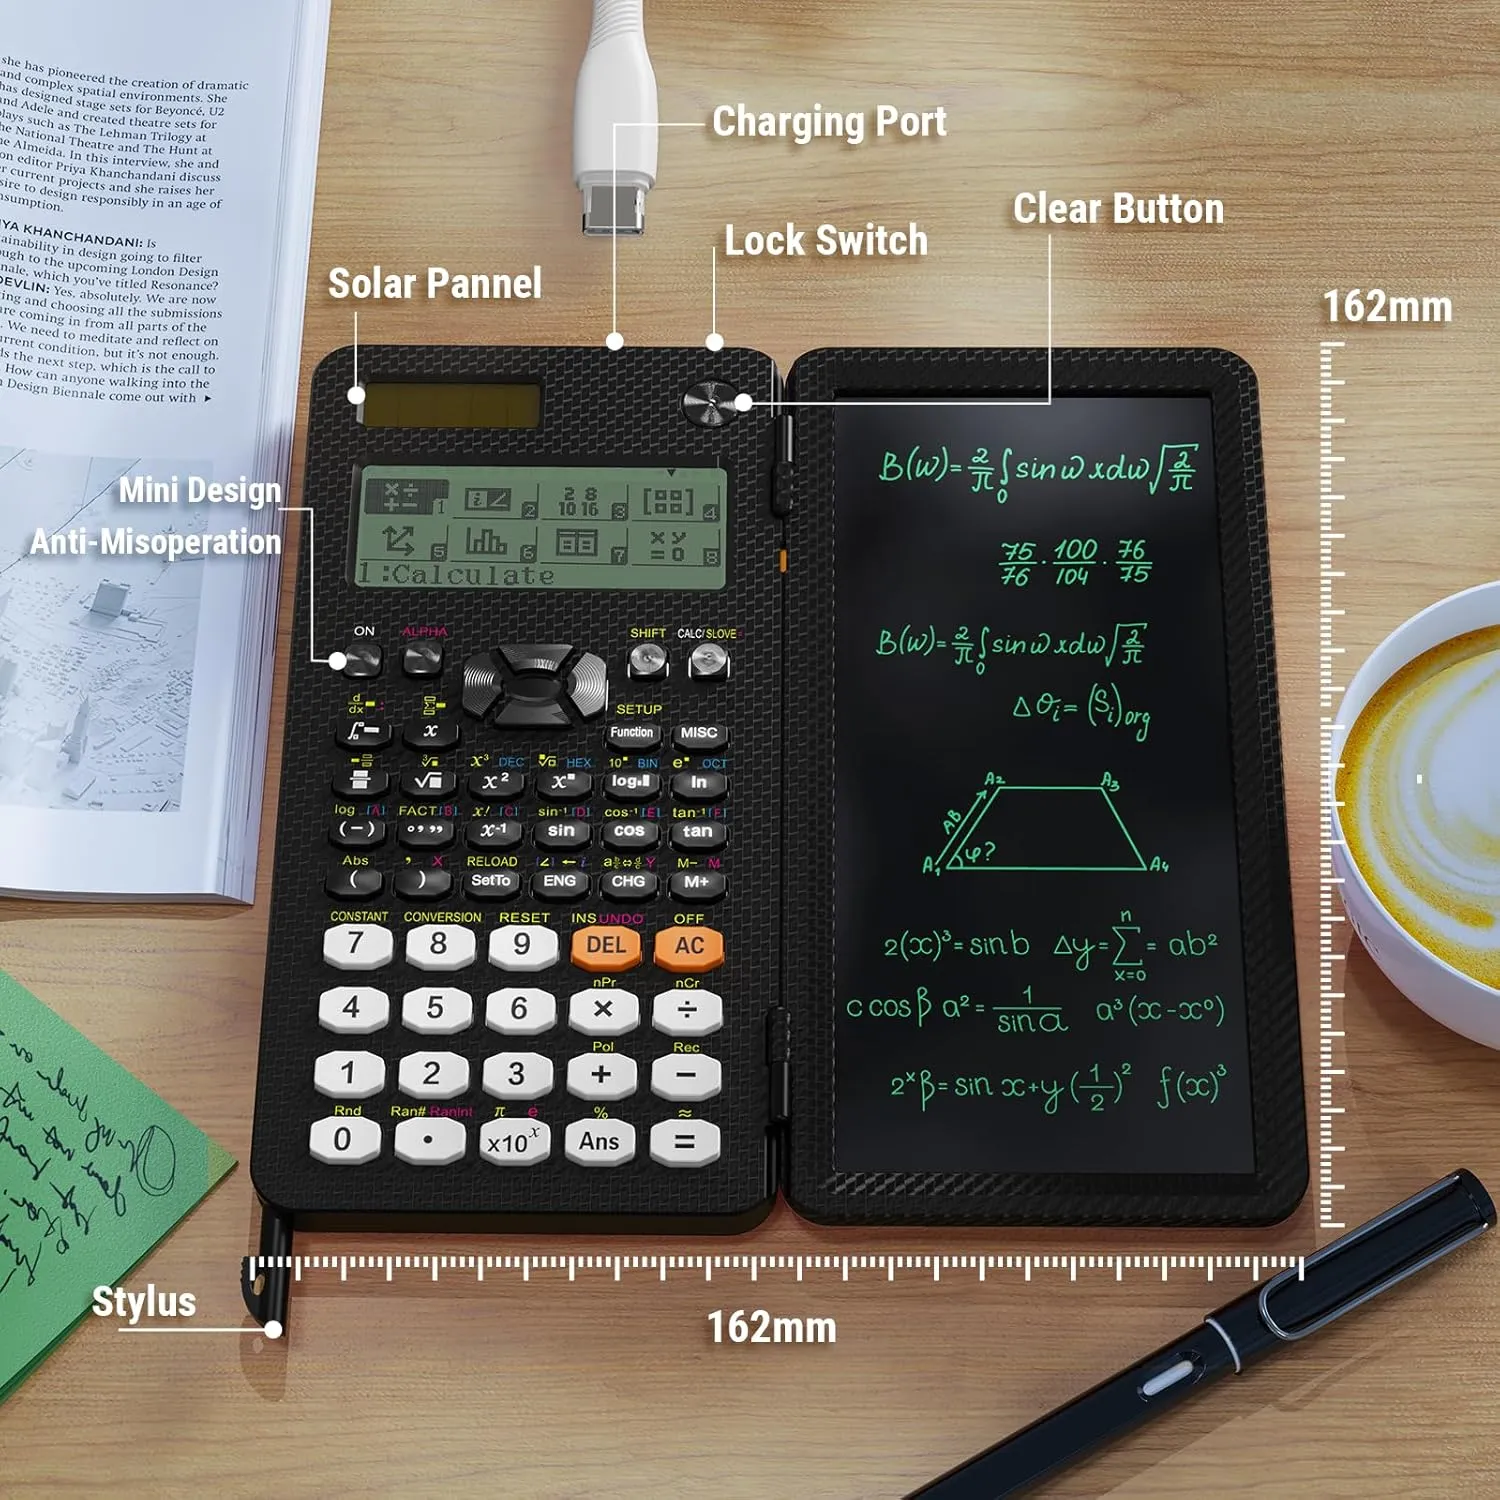 she has pioneered the creation of dramatic
and complex spatial environments. She
has designed stage sets for Beyoncé, U2
and Adele and created theatre sets for
plays such as The Lehman Trilogy at
the National Theatre and The Hunt at
the Almeida. In this interview, she and
editor Priya Khanchandani discuss
current projects and she raises her
desire to design responsibly in an age of
consumption.
PRIYA KHANCHANDANI: Is
sustainability in design going to filter
through to the upcoming London Design
Biennale, which you've titled Resonance?
DEVLIN: Yes, absolutely. We are now
and choosing all the submissions
are coming in from all parts of the
. We need to meditate and reflect on
current condition, but it's not enough.
the next step, which is the call to
. How can anyone walking into the
Design Biennale come out with ▸
Charging Port
Clear Button
Lock Switch
Solar Pannel
162mm
Mini Design
Anti-Misoperation
1 2 3 4
2 8
10 16
5 6 7 8
x y
= 0
1:Calculate
ON ALPHA SHIFT CALC/SLOVE=
d/dx ■ : Σ■ SETUP
∫■ x Function MISC
∛■ x³ DEC ■√□ HEX 10■ BIN e■ OCT
√■ x² x■ log■ ln
log [A] FACT [B] x! [C] sin⁻¹ [D] cos⁻¹ [E] tan⁻¹ [F]
(−) °’” x⁻¹ sin cos tan
Abs , X RELOAD ∠ ← i Y M− M
( ) SetTo ENG CHG M+
CONSTANT CONVERSION RESET INS UNDO OFF
7 8 9 DEL AC
nPr nCr
4 5 6 × ÷
Pol Rec
1 2 3 + −
Rnd Ran# RanInt π e % ≈
0 • x10ˣ Ans =
B(w)= 2/π ∫₀ sin ω x dω √(2/π)
75/76 · 100/104 · 76/75
B(w)= 2/π ∫₀ sin ω x dω √(2/π)
Δ θᵢ= (Sᵢ)org
A₂ A₃
AB
A₁ φ? A₄
2(x)³= sin b Δy= n Σ x=0 = ab²
c cos β a² = 1/sin a a³(x-x⁰)
2ˣβ= sin x+y (1/2)² f(x)³
Stylus
162mm